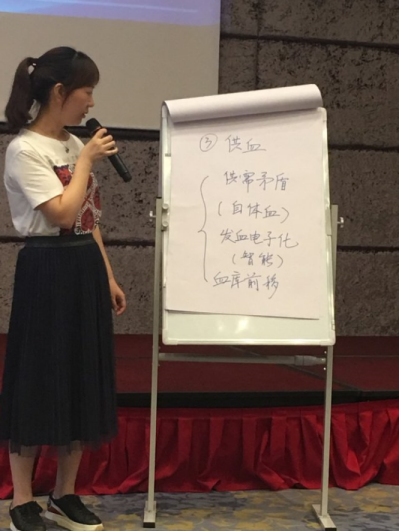 ③ 供血
供需矛盾
(自体血)
发血电子化
(智能)
血库前移